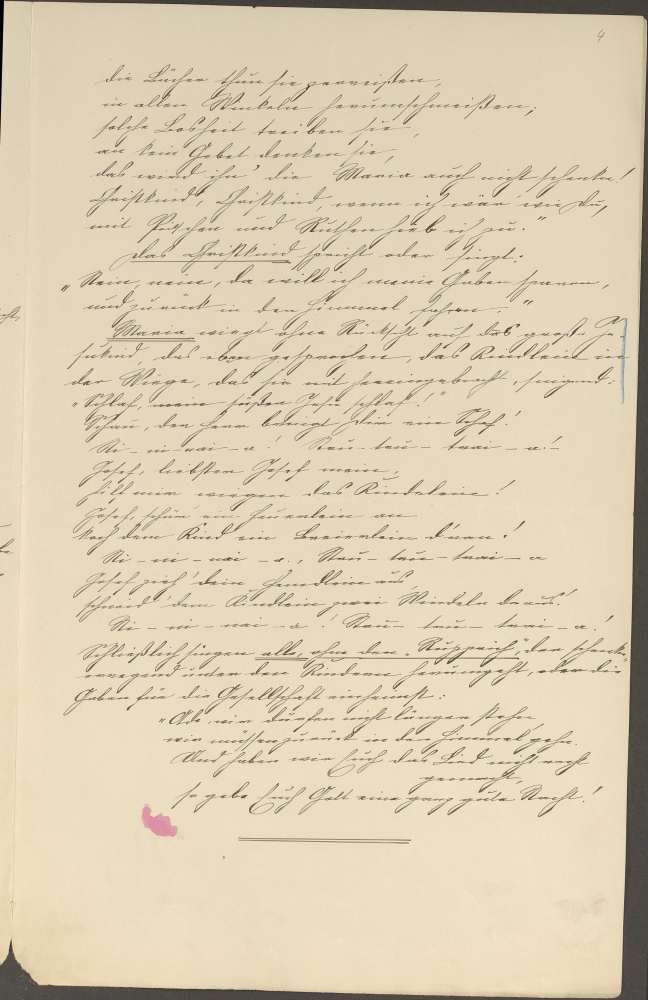 4
die Bücher thun sie zerreißen,
in allen Winkeln herumschmeißen;
solche Bosheit treiben sie,
an kein Gebet denken sie,
das wird ihn' die Maria auch nicht schenken!
Christkind, Christkind, wenn ich wär' wie Du,
mit Peitschen und Ruthen hieb ich zu."
Das Christkind spricht oder singt:
„Nein, nein, da will ich meine Gaben sparen,
und zurück in den Himmel fahren."
Maria wiegt ohne Rücksicht auf das große Je-
sukind, das eben gesprochen, das Kindlein in
der Wiege, das sie mit hereingebracht, singend:
„Schlaf, mein süßer Jesu schlaf!"
Schau, der Herr bringt Dir ein Schaf!
Ni-ni-nai-a! Neu-teu-trai-a!
Josef, liebster Josef mein,
hilf mir wiegen das Kindelein!
Josef, schür' ein Feuerlein an
Koch dem Kind ein Breierlein d'ran!
Ni-ni-nai-a, Neu-teu-trai-a
Josef zieh' dein Hemdlein aus,
schneid' dem Kindlein zwei Windeln draus!
Ni-ni-nai-a! Neu-teu-trai-a!
Schließlich singen alle, ohne den „Ruppich", der schrecken-
erregend unter den Kindern herumgeht, oder die
Gaben für die Gesellschaft einheimst:
„Ade, wir dürfen nicht länger stehn,
wir müssen zurück in den Himmel gehn.
Und haben wir Euch das Lied nicht recht
gemacht,
so gebe Euch Gott eine ganz gute Nacht!